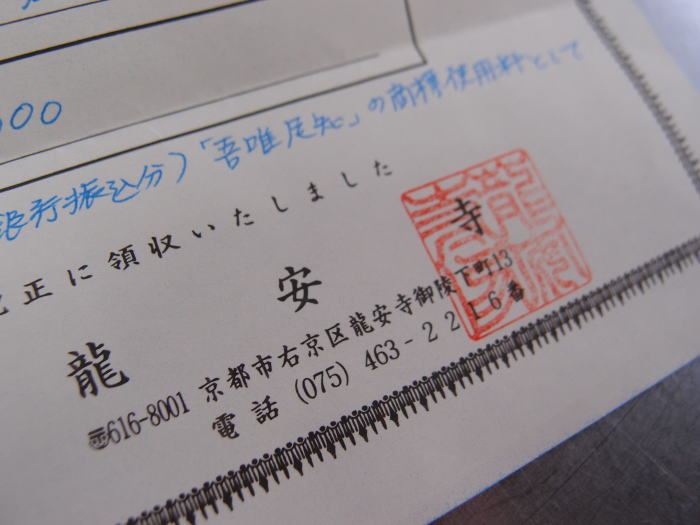 000
銀行振込分)「吾唯足知」の商標使用料として
正に領収いたしました
龍安寺
〒616-8001 京都市右京区龍安寺御陵下町13
電話 (075) 463-2216番